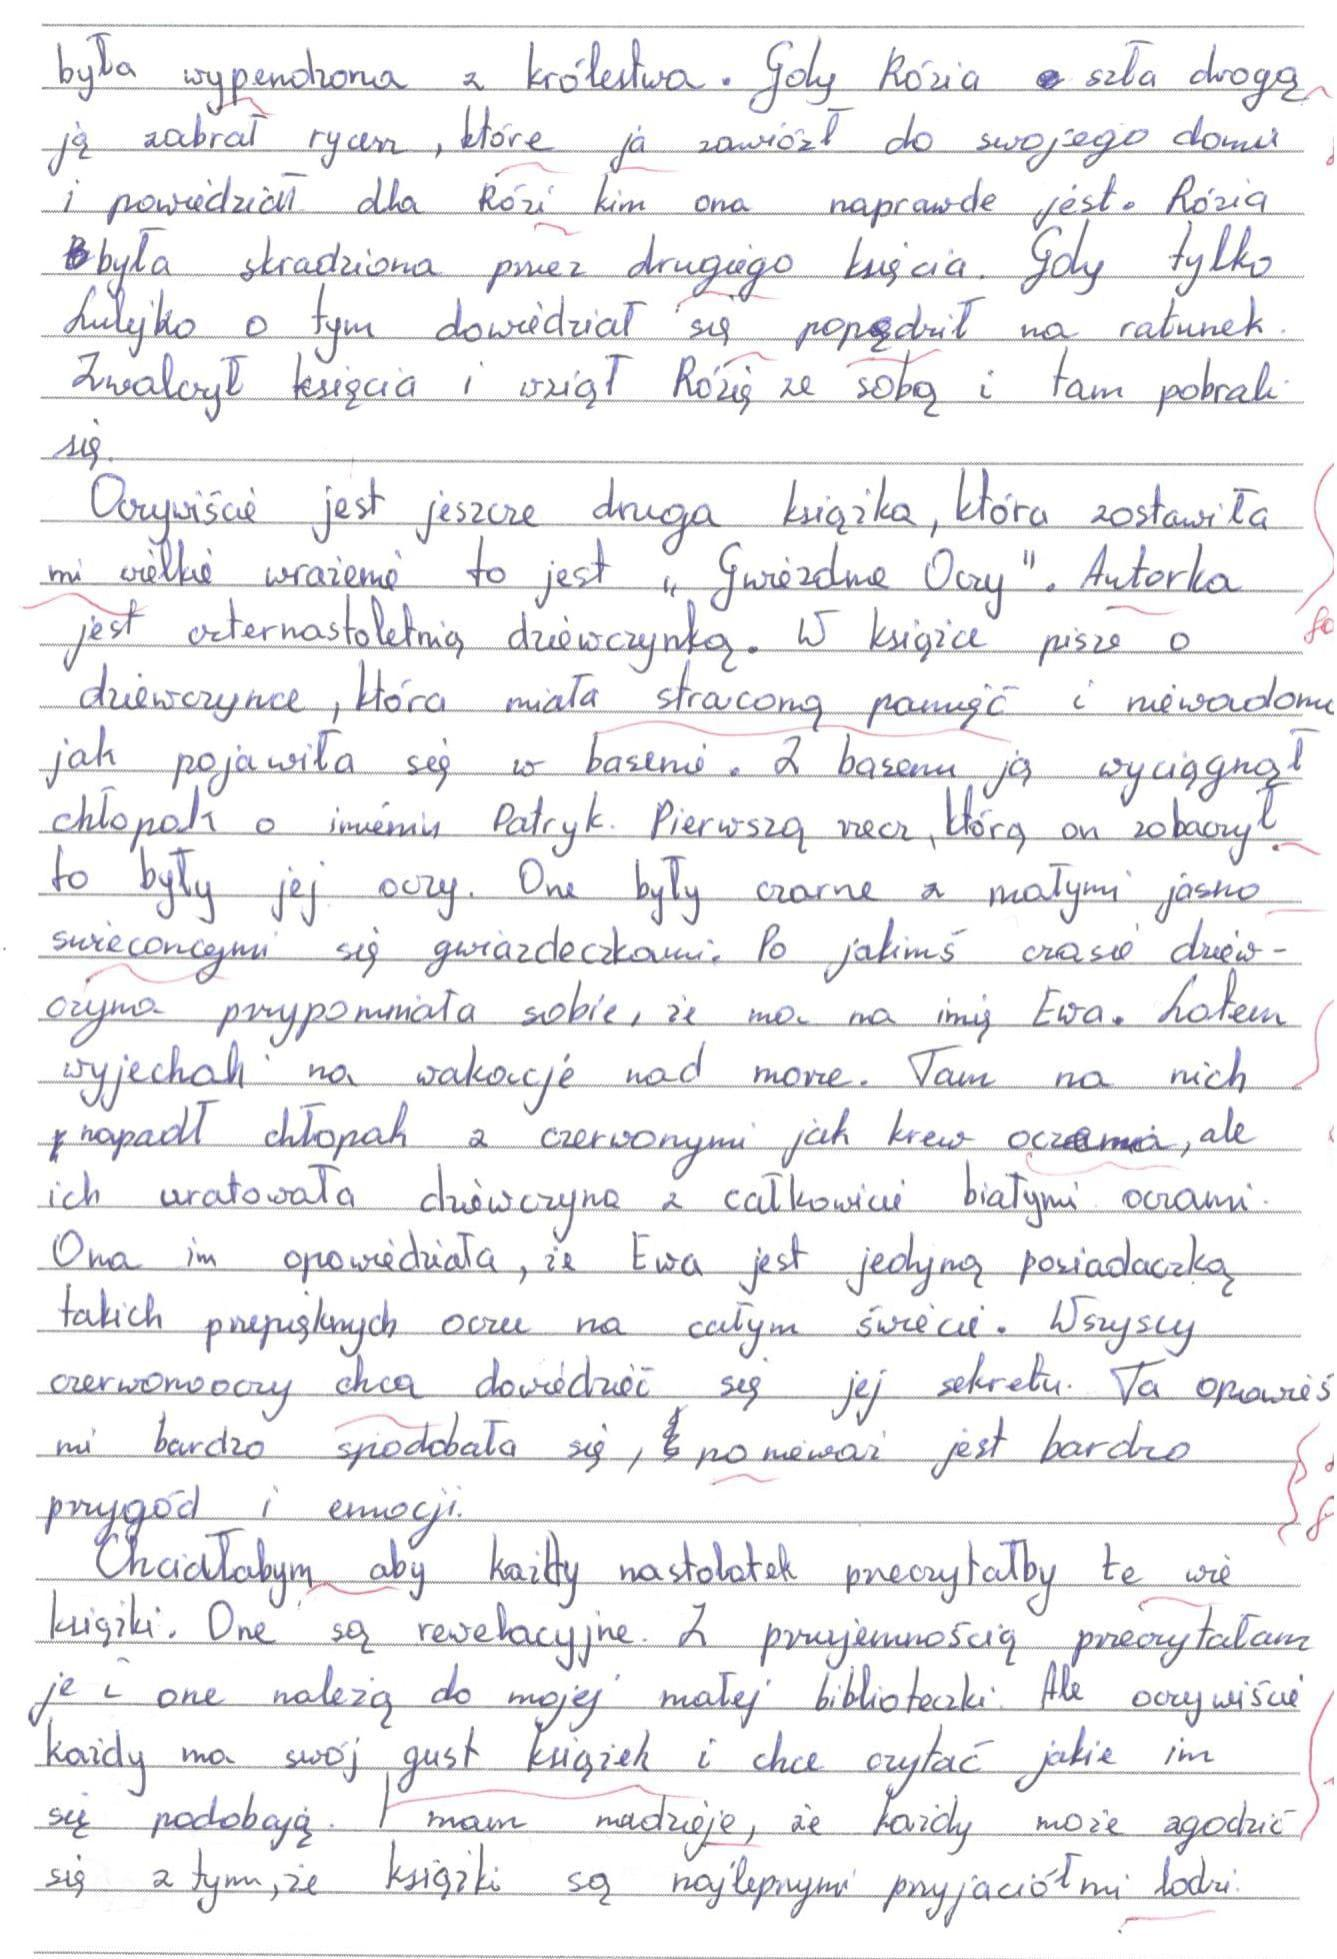 była wypendzona z królestwa. Gdy Rózia szła drogą
ją zabrał rycerz, które ja zawiózł do swojego domu
i powiedział dla Rózi kim ona naprawde jest. Rózia
była skradziona przez drugiego księcia. Gdy tylko
Lulejko o tym dowiedział się popędził na ratunek.
Zwalczył księcia i wziął Rózię ze sobą i tam pobrali
się.
Oczywiście jest jeszcze druga książka, która zostawiła
mi wielkie wrażenie to jest „Gwiezdne Oczy". Autorka
jest czternastoletnią dziewczynką. W książce pisze o
dziewczynce, która miała straconą pamięć i niewiadomo
jak pojawiła się w basenie. Z basenu ją wyciągnął
chłopak o imieniu Patryk. Pierwszą rzecz, którą on zobaczył
to były jej oczy. One były czarne z małymi jasno
swiecąncymi się gwiazdeczkami. Po jakimś czasie dziew-
czyna przypomniała sobie, że ma na imię Ewa. Latem
wyjechali na wakacje nad morze. Tam na nich
napadł chłopak z czerwonymi jak krew oczamia, ale
ich uratowała dziewczyna z całkowicie białymi oczami.
Ona im opowiedziała, że Ewa jest jedyną posiadaczką
takich przepięknych oczu na całym świecie. Wszyscy
czerwonooczy chca dowiedzieć się jej sekretu. Ta opowieś
mi bardzo spodobała się, po nieważ jest bardzo
przygód i emocji.
Chciałabym aby każdy nastolatek przeczytałby te wie
książki. One są rewelacyjne. Z przyjemnością przeczytałam
je i one należą do mojej małej biblioteczki. Ale oczywiście
każdy ma swój gust książek i chce czytać jakie im
się podobają. I mam nadzieje, że każdy może zgodzić
się z tym, że książki są najlepnymi przyjaciółmi lodzi.